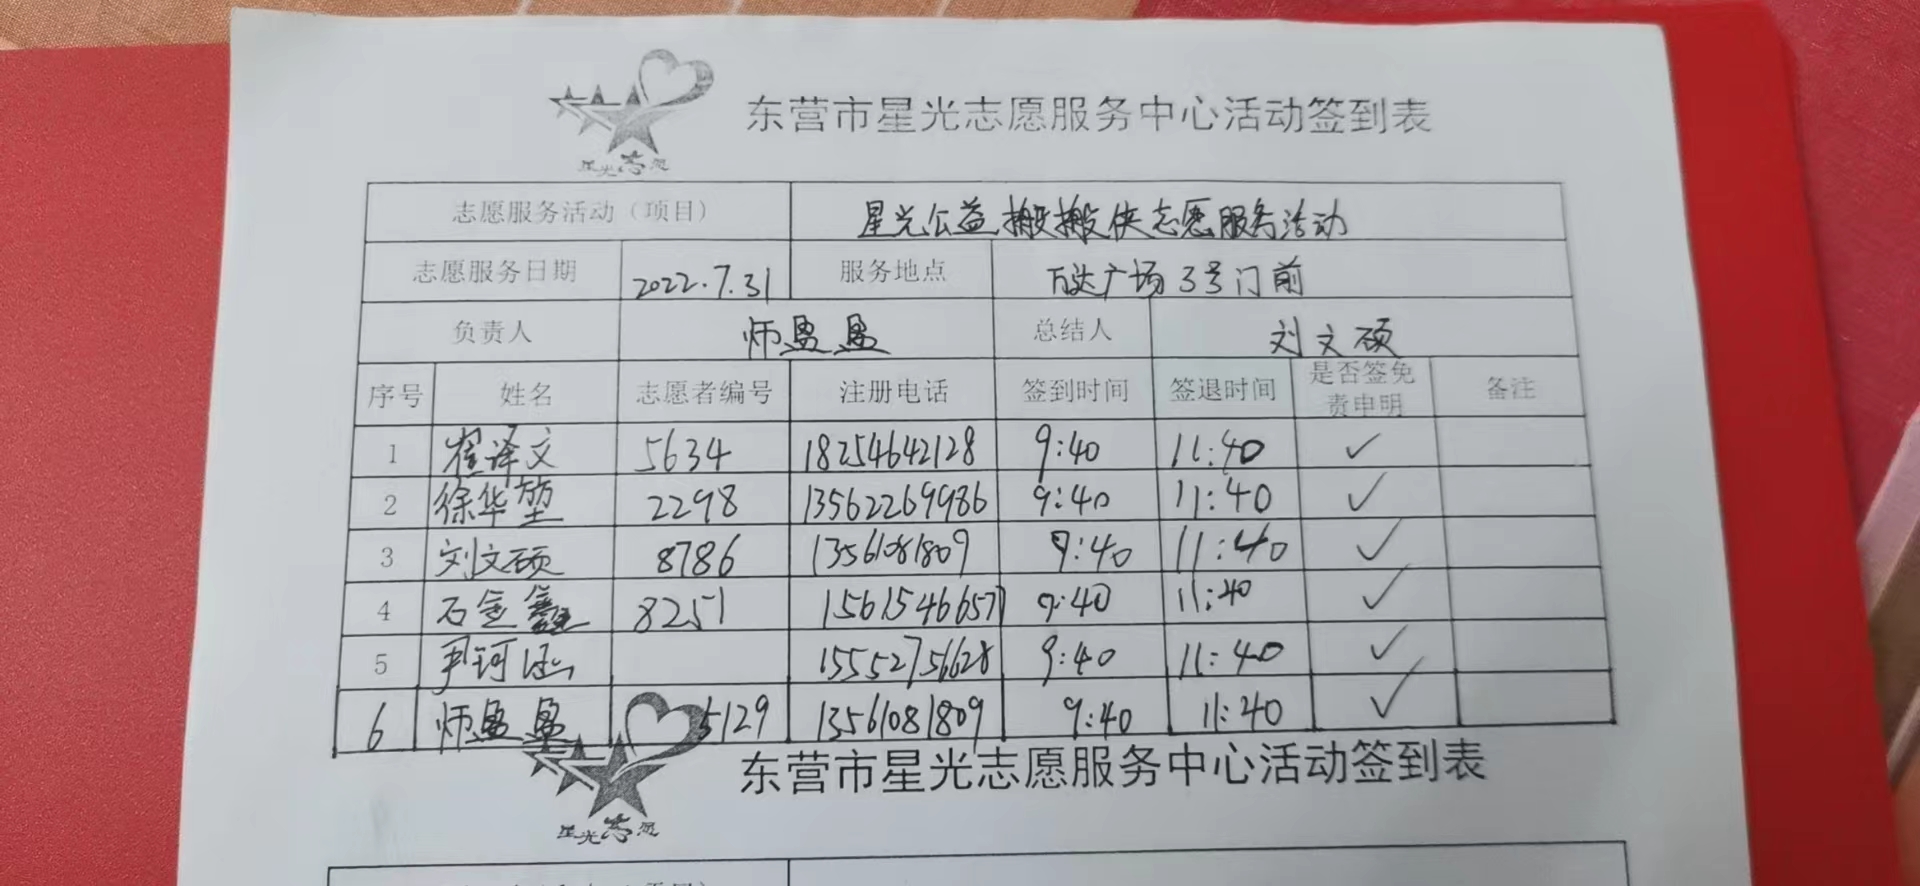 星光志愿
东营市星光志愿服务中心活动签到表
志愿服务活动（项目） 星光公益搬搬侠志愿服务活动
志愿服务日期 2022.7.31 服务地点 万达广场3号门前
负责人 师盈盈 总结人 刘文硕
序号 姓名 志愿者编号 注册电话 签到时间 签退时间 是否签免责申明 备注
1 崔译文 5634 18254642128 9:40 11:40 ✓
2 徐华堃 2298 13562269986 9:40 11:40 ✓
3 刘文硕 8786 13561081809 9:40 11:40 ✓
4 石金鑫 8251 15615466577 9:40 11:40 ✓
5 尹珂涵 15552756628 9:40 11:40 ✓
6 师盈盈 5129 13561081809 9:40 11:40 ✓
东营市星光志愿服务中心活动签到表
星光志愿